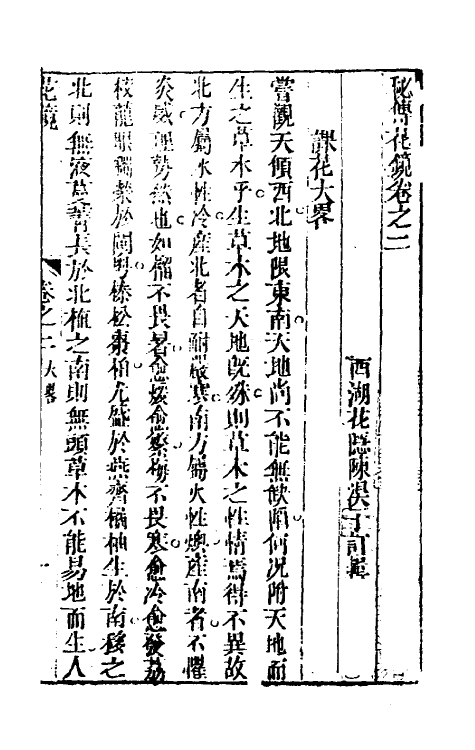 秘傳花鏡卷之二
西湖花隱陳淏子訂輯
課花大畧
嘗觀天傾西北地限東南天地尚不能無缺陷何況附天地而
生之草木乎生草木之天地旣殊則草木之性情焉得不異故
北方屬水性冷產北者自耐嚴寒南方屬火性燠產南者不懼
炎威理勢然也如榴不畏暑愈煖愈繁梅不畏寒愈冷愈發荔
枝龍眼獨榮於閩粵榛松棗柏尤盛於燕齊橘柚生於南移之
北則無液蔓菁長於北植之南則無頭草木不能易地而生人
花鏡
卷之二
大畧